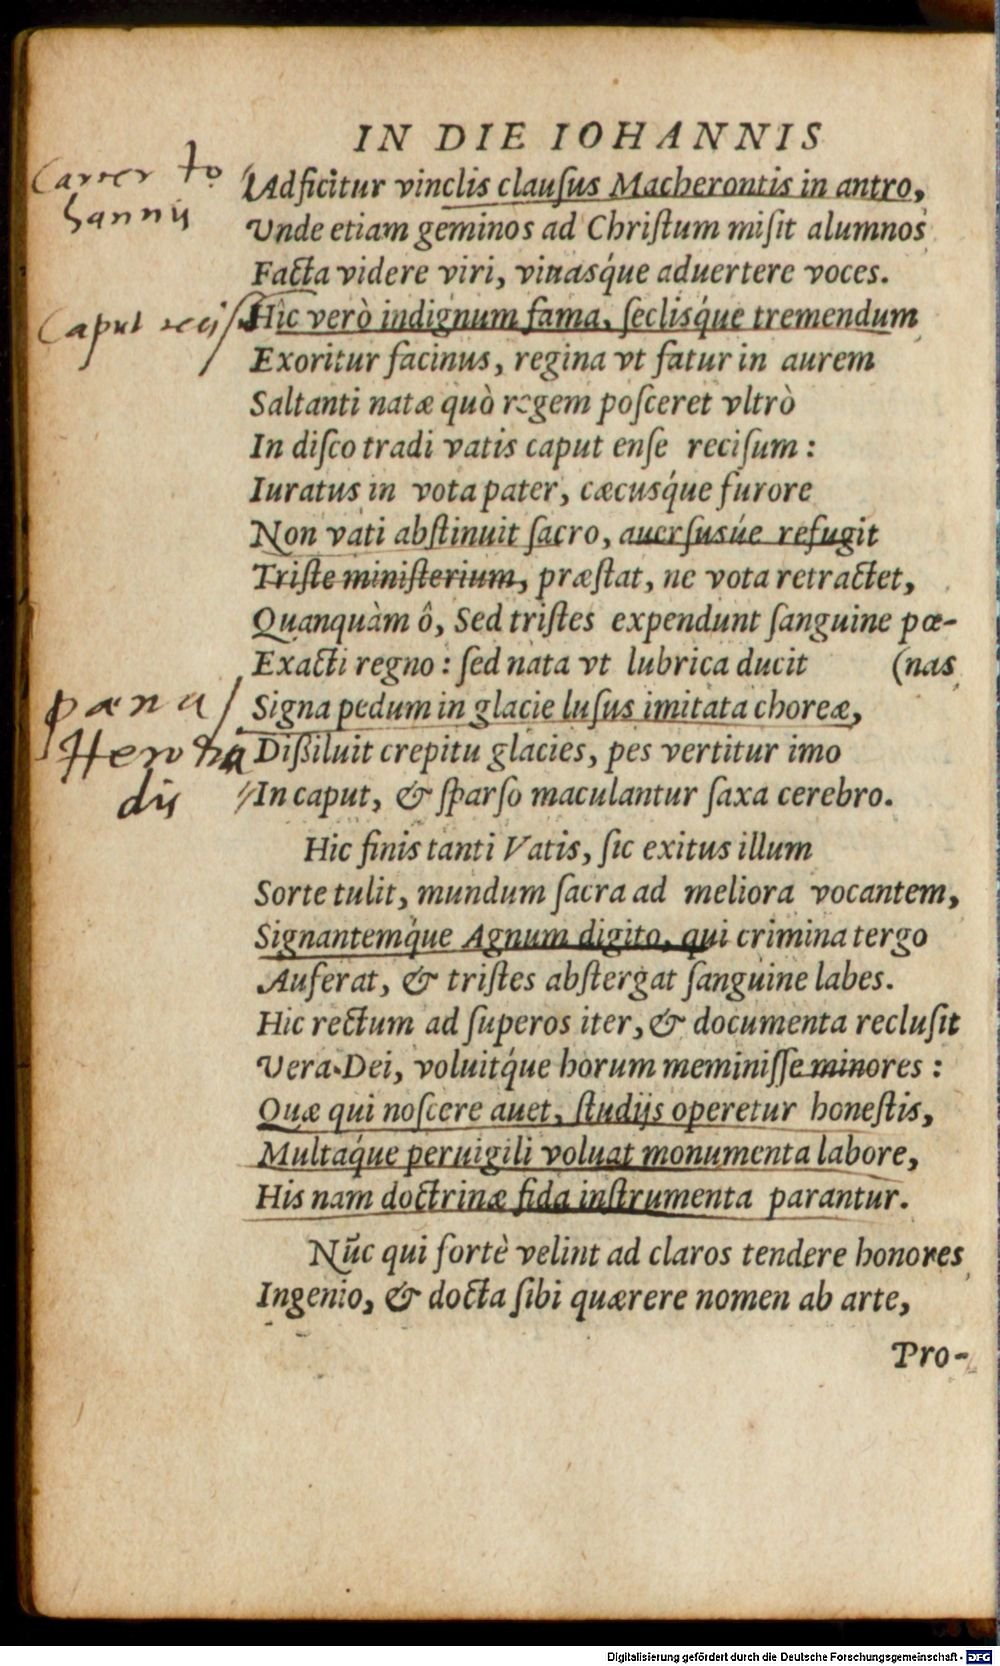 IN DIE IOHANNIS
Carcer Io
hannis
Adficitur vinclis clauſus Macherontis in antro,
Vnde etiam geminos ad Chriſtum miſit alumnos
Facta videre viri, viuasq́ue aduertere voces.
Caput
Hîc verò indignum fama, ſeclisq́ue tremendum
Exoritur facinus, regina vt fatur in aurem
Saltanti natæ quò regem poſceret vltrò
In diſco tradi vatis caput enſe reciſum:
Iuratus in vota pater, cæcusq́ue furore
Non vati abſtinuit ſacro, auerſusúe refugit
Triſte miniſterium, præſtat, ne vota retractet,
Quanquàm ô, Sed triſtes expendunt ſanguine pœ-
Exacti regno: ſed nata vt lubrica ducit (nas
Signa pedum in glacie luſus imitata choreæ,
pæna
Herodia
dis
Diſsiluit crepitu glacies, pes vertitur imo
In caput, & ſparſo maculantur ſaxa cerebro.
Hic finis tanti Vatis, ſic exitus illum
Sorte tulit, mundum ſacra ad meliora vocantem,
Signantemq́ue Agnum digito, qui crimina tergo
Auferat, & triſtes abſtergat ſanguine labes.
Hic rectum ad ſuperos iter, & documenta recluſit
Vera Dei, voluitq́ue horum meminiſſe minores:
Quæ qui noſcere auet, ſtudijs operetur honeſtis,
Multaq́ue peruigili voluat monumenta labore,
His nam doctrinæ fida inſtrumenta parantur.
Nūc qui fortè velint ad claros tendere honores
Ingenio, & docta ſibi quærere nomen ab arte,
Pro-
Digitalisierung gefördert durch die Deutsche Forschungsgemeinschaft - DFG